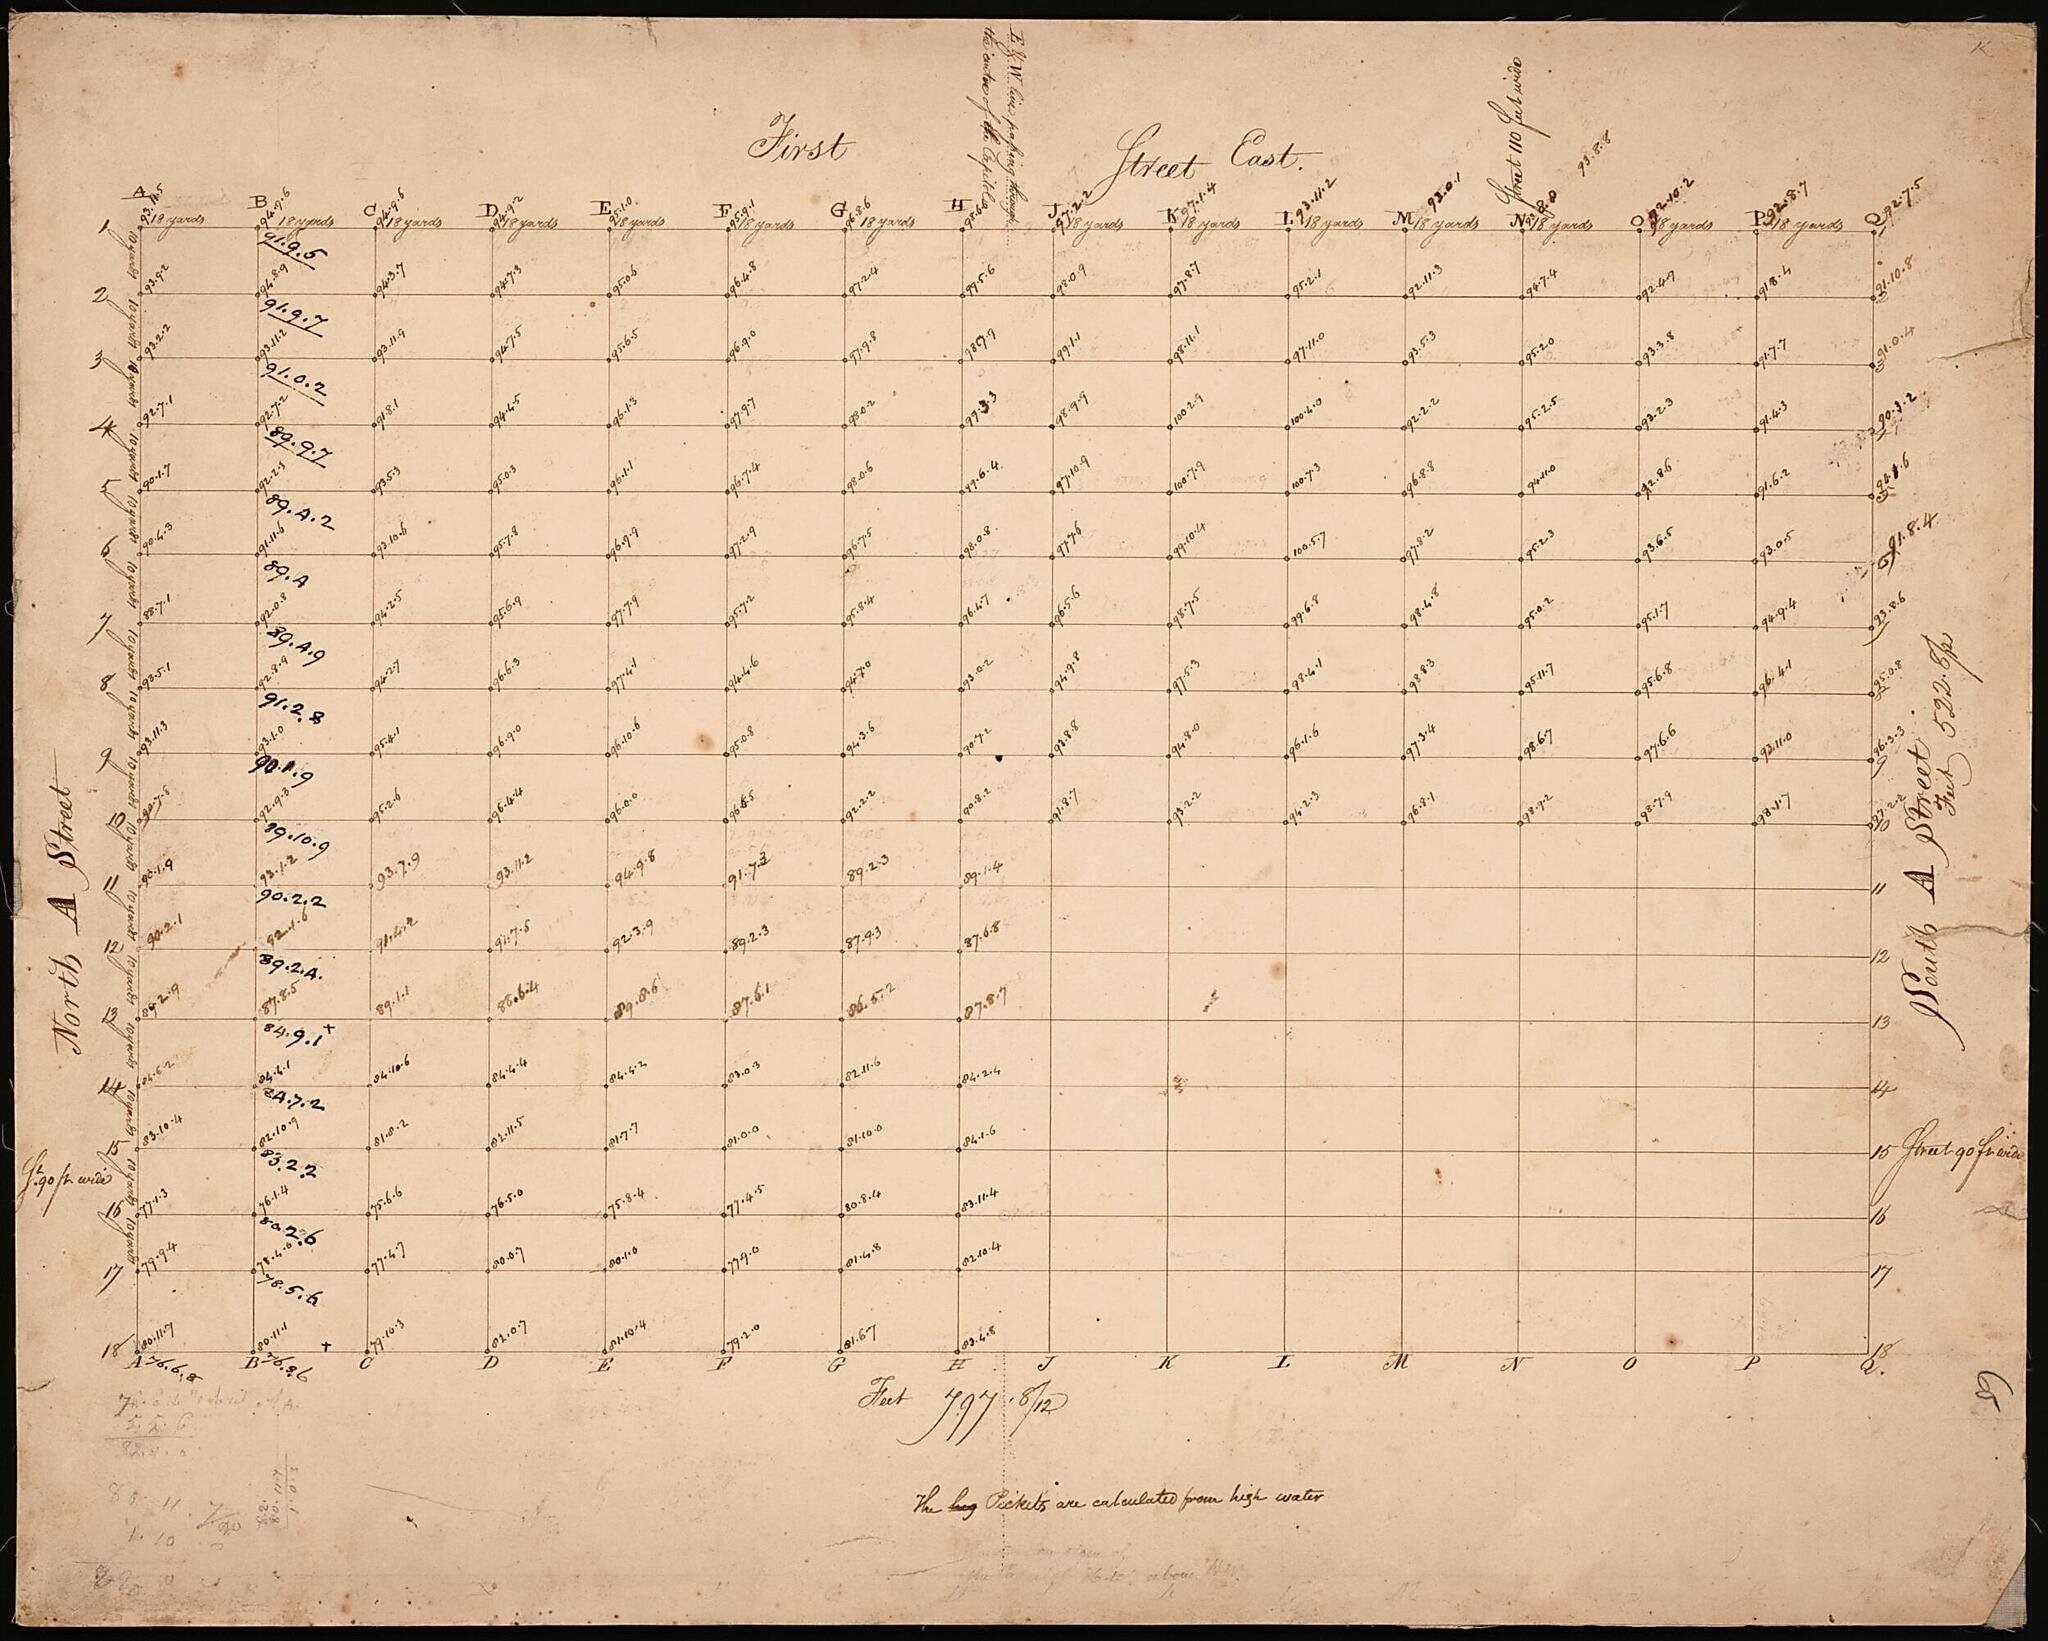 K
E & W line passing through
the centre of the Capitol
First Street East.
Street 110 feet wide
93.8.8
A B C D E F G H J K L M N O P Q
93.11.5 94.9.6 94.9.6 94.9.2 95.1.0 95.9.1 96.8.6 97.2.2 97.1.4 93.11.2 93.0.1 92.10.2 92.8.7 92.7.5
1 18 yards 18 yards 18 yards 18 yards 18 yards 18 yards 18 yards 18 yards 18 yards 18 yards 18 yards 18 yards 18 yards 18 yards 1
91.9.5
10 yards
2 93.9.2 94.8.9 94.3.7 94.7.3 95.0.6 96.4.8 97.2.4 99.5.6 98.0.9 97.8.7 95.2.1 92.11.3 94.7.4 92.4.9 91.8.4 91.10.8 2
91.9.7
10 yards
3 93.2.2 93.11.2 93.11.9 94.7.5 95.6.5 96.9.0 97.9.8 98.7.9 99.1.1 98.11.1 97.11.0 93.5.3 95.2.0 93.3.8 91.7.7 91.0.4 3
91.0.2
10 yards
4 92.7.1 92.7.2 91.8.1 94.4.5 96.1.3 97.9.7 98.0.2 99.3.3 98.9.9 100.2.9 100.4.0 92.2.2 95.2.5 93.2.3 91.4.3 90.3.2 4
89.9.7
10 yards
5 90.1.7 92.2.3 93.5.3 95.0.3 96.1.1 96.7.4 98.0.6 99.6.4 97.10.9 100.7.9 100.7.3 96.8.8 94.11.0 92.8.6 91.6.2 5
89.4.2
10 yards
6 90.4.3 91.11.6 93.10.6 95.7.8 96.9.9 97.2.9 96.7.5 98.0.8 97.7.6 99.10.4 100.5.7 97.8.2 95.2.3 93.6.5 93.0.5 91.8.4 6
89.4
10 yards
7 88.7.1 92.0.8 94.2.5 95.6.9 97.7.9 95.7.2 95.8.4 96.4.7 96.5.6 98.7.5 99.6.8 98.4.8 95.0.2 95.1.7 94.9.4 93.8.6 7
89.4.9
10 yards
8 93.5.1 92.8.9 94.2.7 96.6.3 97.4.1 94.4.6 94.7.0 93.0.2 94.9.8 97.5.3 98.4.1 98.8.3 95.11.7 95.6.8 96.4.1 95.0.8 8
91.2.8
10 yards
9 93.11.3 93.1.0 95.4.1 96.9.0 96.10.6 95.0.8 94.3.6 90.7.2 93.8.8 94.8.0 96.1.6 97.3.4 98.6.7 97.6.6 93.11.0 96.3.3 9
90.1.9
10 yards
10 92.9.3 95.2.6 96.4.4 96.0.0 92.2.2 90.8.2 91.8.7 93.2.2 94.2.3 96.8.1 98.9.2 98.7.9 98.1.7 97.2.2 10
89.10.9
10 yards
11 90.1.9 93.1.2 93.7.9 93.11.2 94.9.8 91.7.1 89.2.3 89.1.4 11
90.2.2
10 yards
12 90.2.1 92.1.6 91.4.2 91.7.5 92.3.9 89.2.3 87.9.3 87.6.8 12
89.2.4.
10 yards
13 89.2.9 87.8.5 89.1.1 88.6.4 89.8.6 87.6.1 86.5.2 87.8.7 13
84.9.1 +
10 yards
14 84.6.2 84.4.1 84.10.6 84.4.4 84.4.2 83.0.3 82.11.6 84.2.4 14
84.7.2
10 yards
15 83.10.4 82.10.9 81.8.2 82.11.5 81.7.7 81.0.0 81.10.0 84.1.6 15
83.2.2
10 yards
16 77.1.3 76.1.4 75.6.6 76.5.0 75.8.4 77.4.5 80.8.4 83.11.4 16
80.2.6
10 yards
17 79.9.4 78.4.0 77.4.7 80.0.7 80.1.0 77.9.0 81.4.8 82.10.4 17
78.5.6
18 80.11.7 80.11.1 + 79.10.3 82.0.7 81.10.4 79.2.0 81.6.7 83.4.8 18
A B C D E F G H J K L M N O P Q.
76.6.8 76.8.6
North A Street
St. 90 ft wide
South A Street
Feet 522.8/12
Street 90 ft wide
Feet 797.8/12
The Pickets are calculated from high water
65